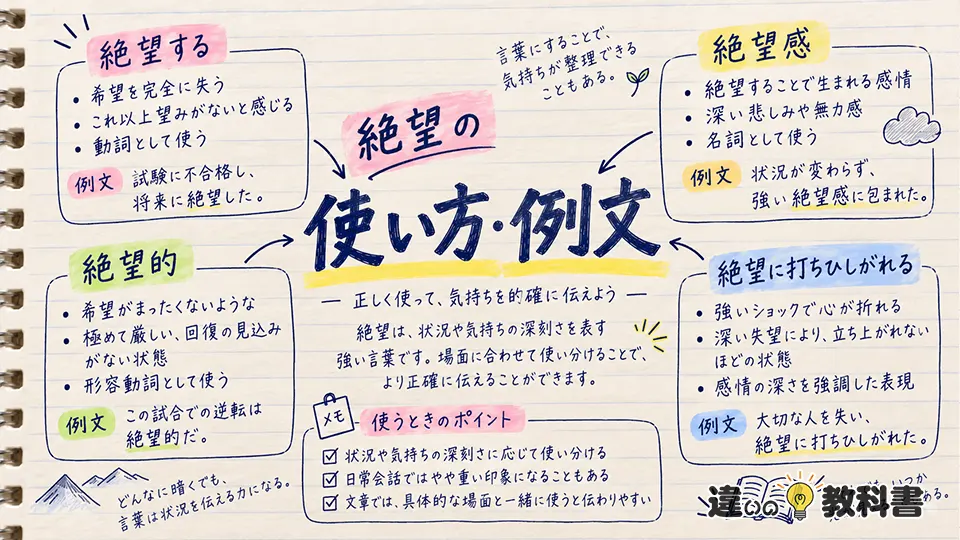 絶望する
・希望を完全に失う
・これ以上望みがないと感じる
・動詞として使う
例文 試験に不合格し、
将来に絶望した。
言葉にすることで、
気持ちが整理できる
こともある。
絶望感
・絶望することで生まれる感情
・深い悲しみや無力感
・名詞として使う
例文 状況が変わらず、
強い絶望感に包まれた。
絶望の
使い方・例文
― 正しく使って、気持ちを的確に伝えよう ―
絶望は、状況や気持ちの深刻さを表す
強い言葉です。場面に合わせて使い分けることで、
より正確に伝えることができます。
絶望的
・希望がまったくないような
・極めて厳しい、回復の見込み
がない状態
・形容動詞として使う
例文 この試合での逆転は
絶望的だ。
絶望に打ちひしがれる
・強いショックで心が折れる
・深い失望により、立ち上がれない
ほどの状態
・感情の深さを強調した表現
例文 大切な人を失い、
絶望に打ちひしがれた。
メモ 使うときのポイント
☑ 状況や気持ちの深刻さに応じて使い分ける
☑ 日常会話ではやや重い印象になることもある
☑ 文章では、具体的な場面と一緒に使うと伝わりやすい
どんなに暗くても、
言葉は状況を伝える力になる。
いつか
ある。
違いの教科書